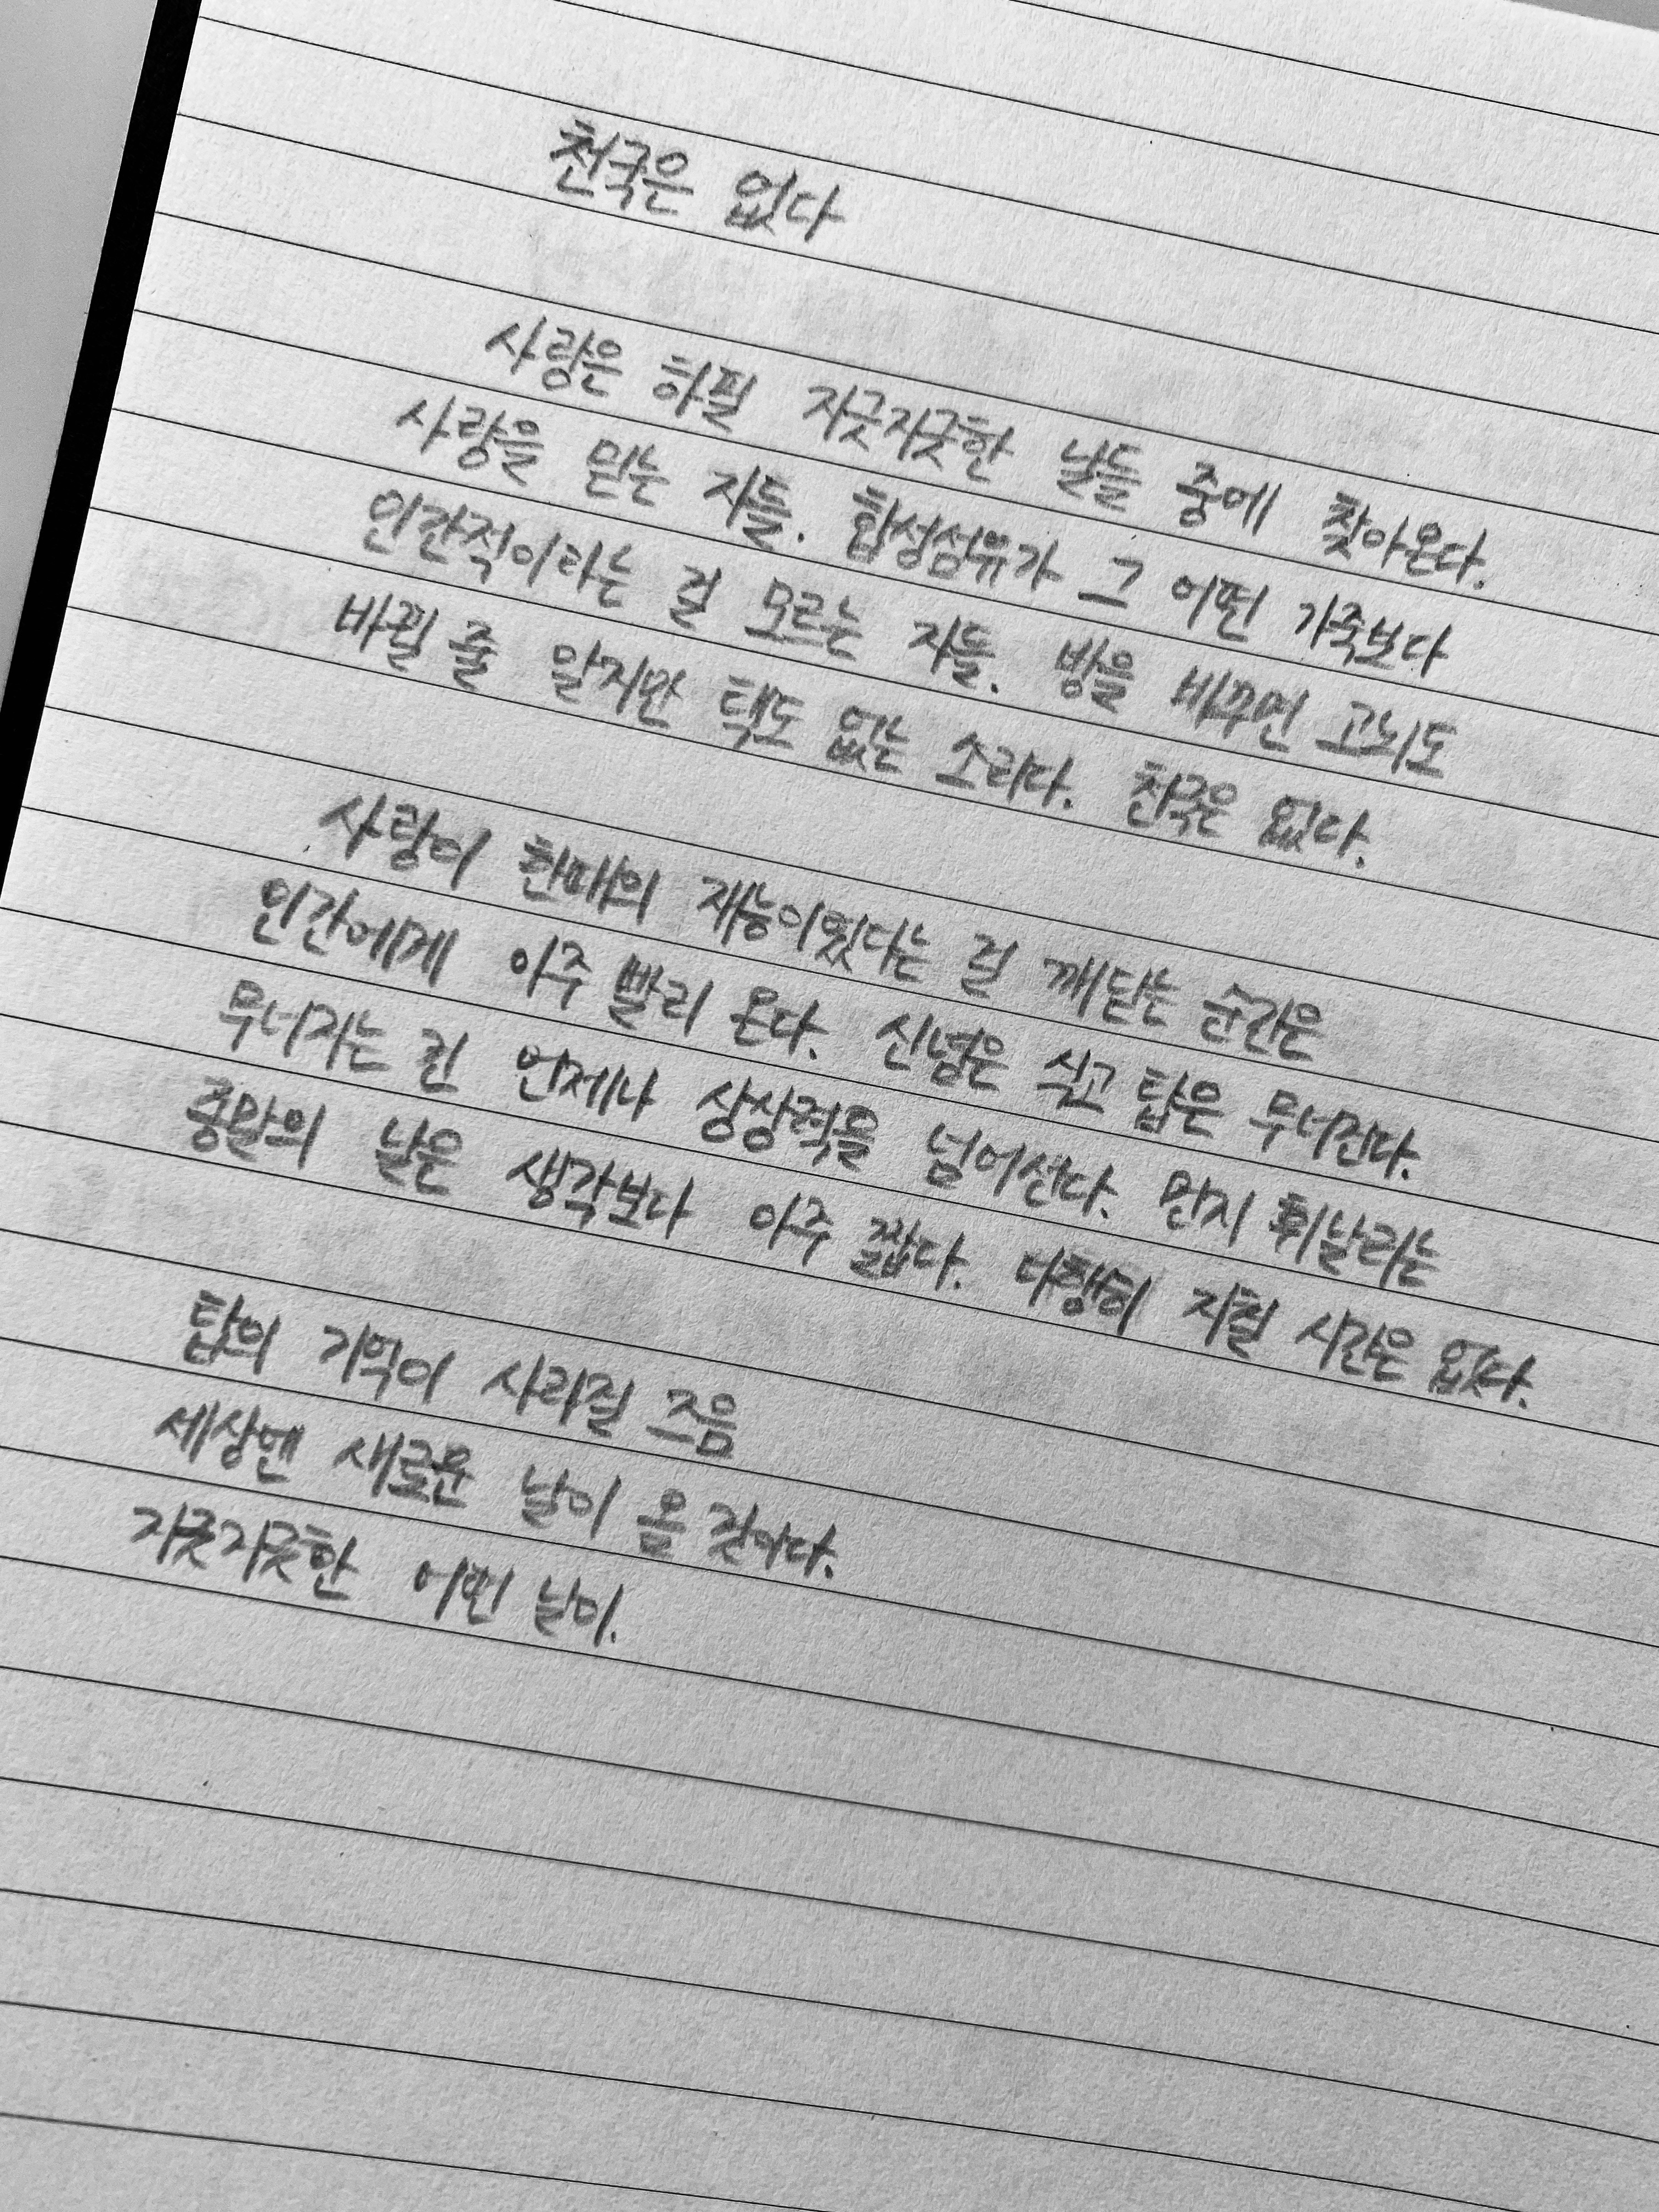 천국은 없다
사랑은 하필 지긋지긋한 날들 중에 찾아온다.
사랑을 믿는 자들. 합성섬유가 그 어떤 가죽보다
인간적이라는 걸 모르는 자들. 방을 바꾸면 고뇌도
바뀔 줄 알지만 택도 없는 소리다. 천국은 없다.
사랑이 한때의 재능이었다는 걸 깨닫는 순간은
인간에게 아주 빨리 온다. 신념은 식고 탑은 무너진다.
무너지는 건 언제나 상상력을 넘어선다. 먼지 휘날리는
종말의 날은 생각보다 아주 짧다. 다행히 지칠 시간은 없다.
탑의 기억이 사라질 즈음
세상엔 새로운 날이 올 것이다.
지긋지긋한 어떤 날이.